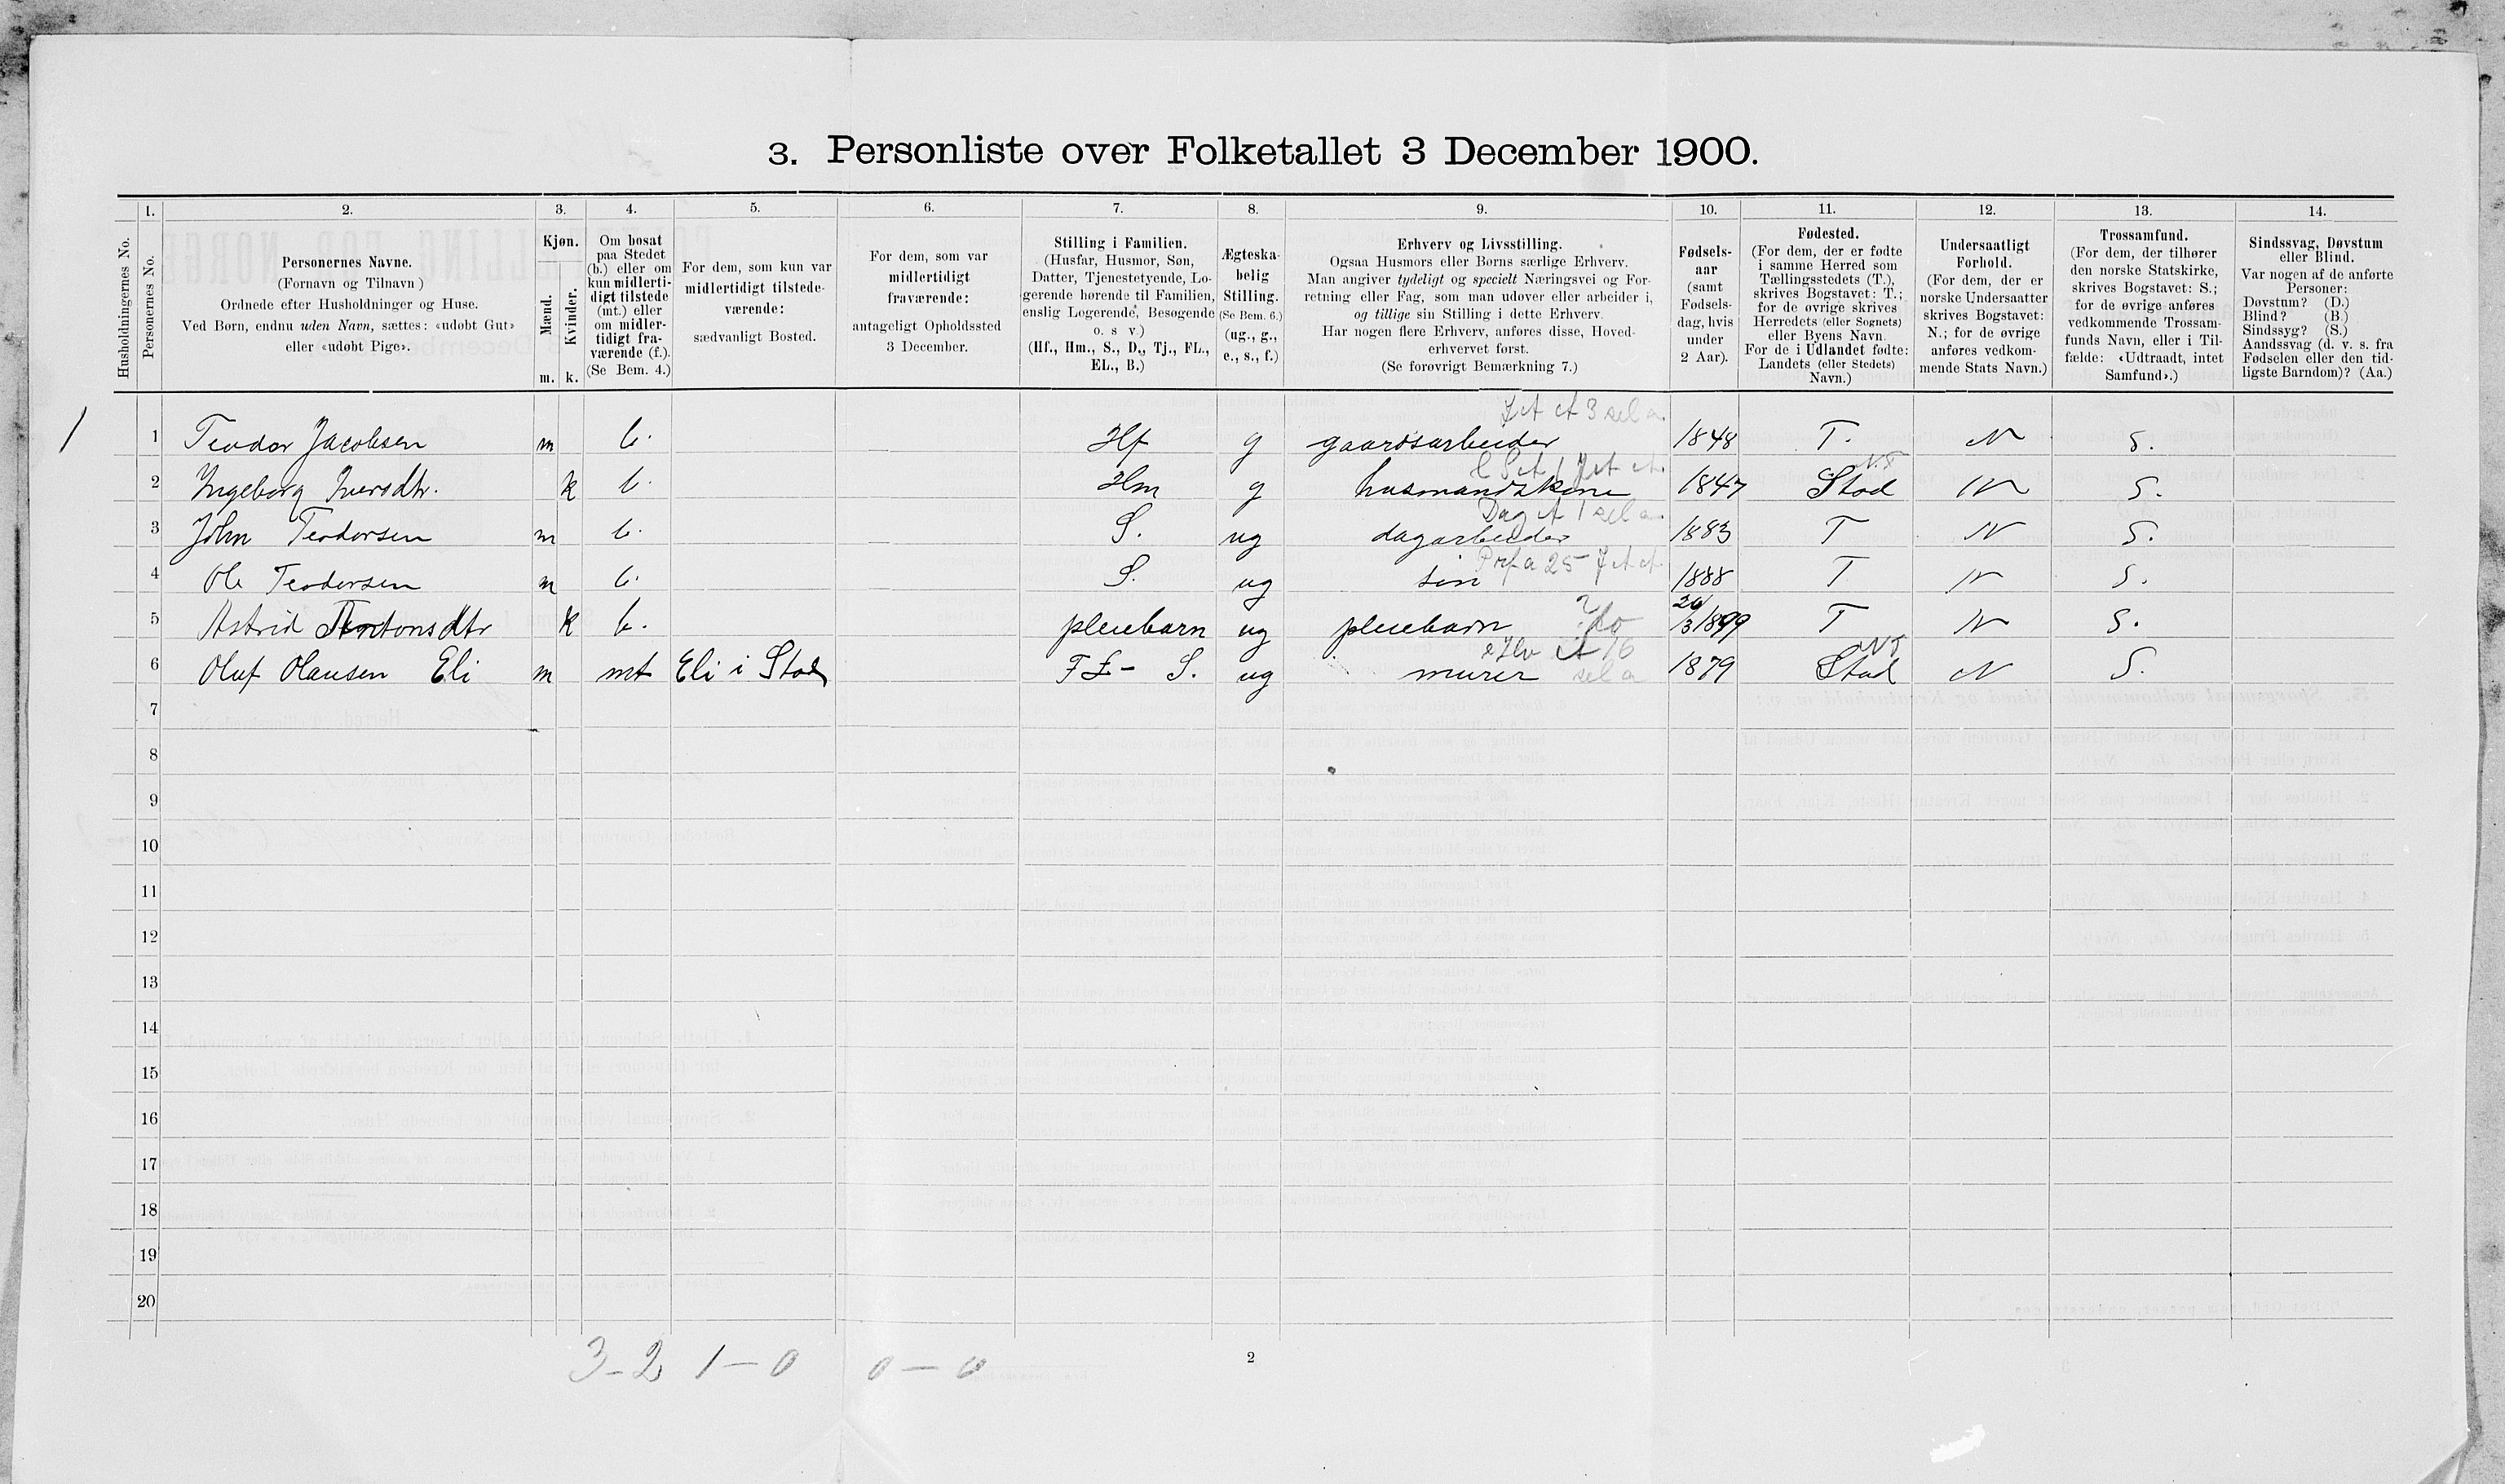 3. Personliste over Folketallet 3 December 1900.
1. 2. 3. 4. 5. 6. 7. 8. 9. 10. 11. 12. 13. 14.
Husholdningernes No.
Personernes No.
Personernes Navne.
(Fornavn og Tilnavn)
Ordnede efter Husholdninger og Huse.
Ved Børn, endnu uden Navn, sættes: «udøbt Gut»
eller «udøbt Pige».
Kjøn.
Mænd.
Kvinder.
m. k.
Om bosat
paa Stedet
(b.) eller om
kun midlerti-
digt tilstede
(mt.) eller
om midler-
tidigt fra-
værende (f.).
(Se Bem. 4.)
For dem, som kun var
midlertidigt tilstede-
værende:
sædvanligt Bosted.
For dem, som var
midlertidigt
fraværende:
antageligt Opholdssted
3 December.
Stilling i Familien.
(Husfar, Husmor, Søn,
Datter, Tjenestetyende, Lo-
gerende hørende til Familien,
enslig Logerende, Besøgende
o. s v.)
(Hf., Hm., S., D., Tj., FL.,
EL., B.)
Ægteska-
belig
Stilling.
(Se Bem. 6.)
(ug., g.,
e., s., f.)
Erhverv og Livsstilling.
Ogsaa Husmors eller Børns særlige Erhverv.
Man angiver tydeligt og specielt Næringsvei og For-
retning eller Fag, som man udøver eller arbeider i,
og tillige sin Stilling i dette Erhverv.
Har nogen flere Erhverv, anføres disse, Hoved-
erhvervet først.
(Se forøvrigt Bemærkning 7.)
Fødsels-
aar
(samt
Fødsels-
dag, hvis
under
2 Aar).
Fødested.
(For dem, der er fødte
i samme Herred som
Tællingsstedets (T.),
skrives Bogstavet: T.;
for de øvrige skrives
Herredets (eller Sognets)
eller Byens Navn.
For de i Udlandet fødte:
Landets (eller Stedets)
Navn.)
Undersaatligt
Forhold.
(For dem, der er
norske Undersaatter
skrives Bogstavet:
N.; for de øvrige
anføres vedkom-
mende Stats Navn.)
Trossamfund.
(For dem, der tilhører
den norske Statskirke,
skrives Bogstavet: S.;
for de øvrige anføres
vedkommende Trossam-
funds Navn, eller i Til-
fælde: «Udtraadt, intet
Samfund».)
Sindssvag, Døvstum
eller Blind.
Var nogen af de anførte
Personer:
Døvstum? (D.)
Blind? (B.)
Sindssyg? (S.)
Aandssvag (d. v. s. fra
Fødselen eller den tid-
ligste Barndom)? (Aa.)
1 1 Teodor Jacobsen m b. Hf g gaardsarbeider 1848 T. N S.
2 Ingeborg Iversdtr. k b. Hm g husmandskone 1847 Stod N S.
3 John Teodorsen m b. S. ug dagarbeider 1883 T N S.
4 Ole Teodorsen m b. S. ug søn 1888 T N S.
5 Astrid k b. pleiebarn ug pleiebarn 20/3 1899 T N S.
6 Oluf Olausen Eli m mt Eli i Stod FL- S. ug murer 1879 Stod N S.
7
8
9
10
11
12
13
14
15
16
17
18
19
20
3-2 1-0 0-0
2